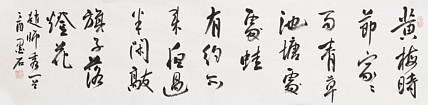 黄梅時
節家〻
雨青草
池塘處
處蛙
有約不
来夜過
半閑敲
棋子落
燈花
趙師秀